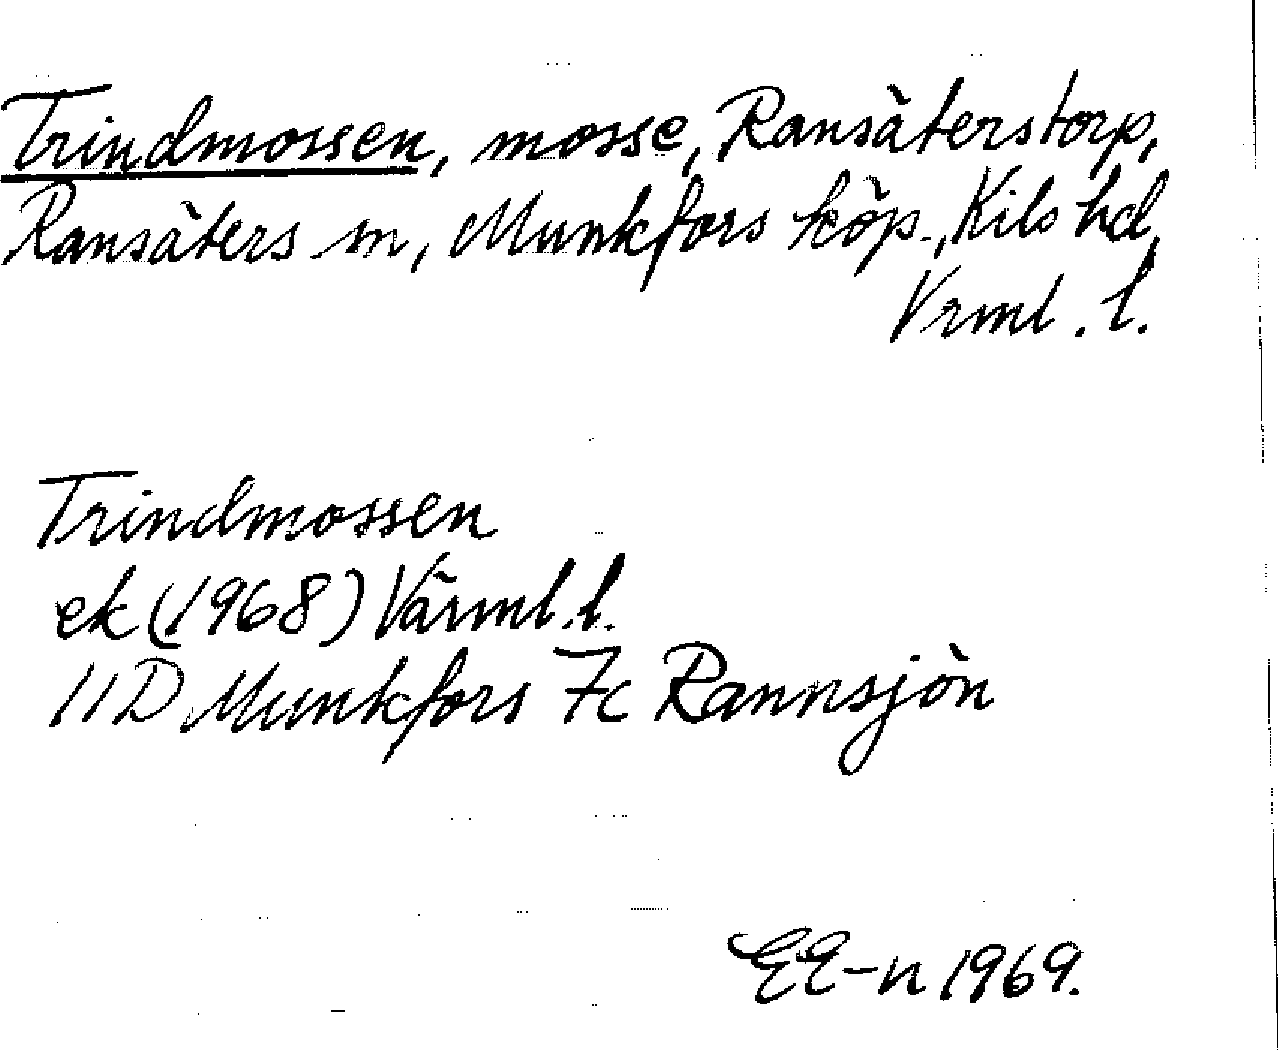 Trindmossen, mosse, Ransäterstorp,
Ransäters sn, Munkfors köp., Kils hd,
Vrml. l.
Trindmossen
ek (1968) Värml. l.
11D Munkfors 7c Rannsjön
EE-n 1969.